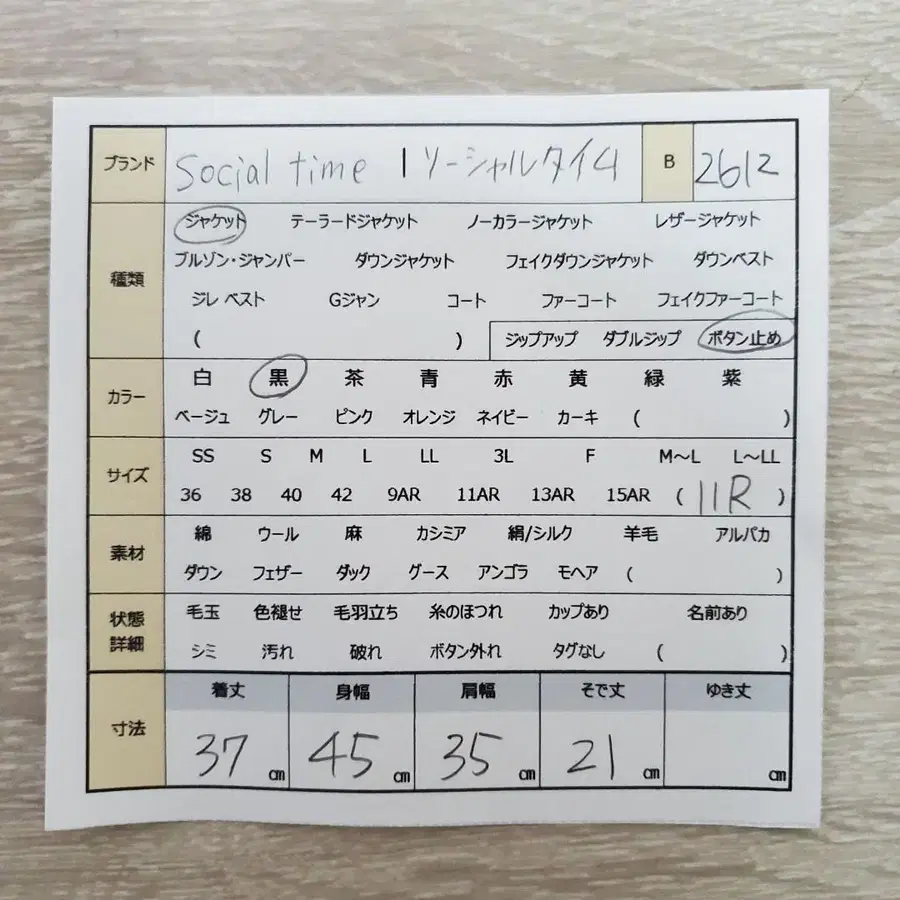 ブランド social time | ソーシャルタイム B 2612
種類 ジャケット テーラードジャケット ノーカラージャケット レザージャケット
ブルゾン・ジャンパー ダウンジャケット フェイクダウンジャケット ダウンベスト
ジレ ベスト Gジャン コート ファーコート フェイクファーコート
( ) ジップアップ ダブルジップ ボタン止め
カラー 白 黒 茶 青 赤 黄 緑 紫
ベージュ グレー ピンク オレンジ ネイビー カーキ ( )
サイズ SS S M L LL 3L F M～L L～LL
36 38 40 42 9AR 11AR 13AR 15AR ( 11R )
素材 綿 ウール 麻 カシミア 絹/シルク 羊毛 アルパカ
ダウン フェザー ダック グース アンゴラ モヘア ( )
状態 毛玉 色褪せ 毛羽立ち 糸のほつれ カップあり 名前あり
詳細 シミ 汚れ 破れ ボタン外れ タグなし ( )
着丈 身幅 肩幅 そで丈 ゆき丈
寸法 37 cm 45 cm 35 cm 21 cm cm